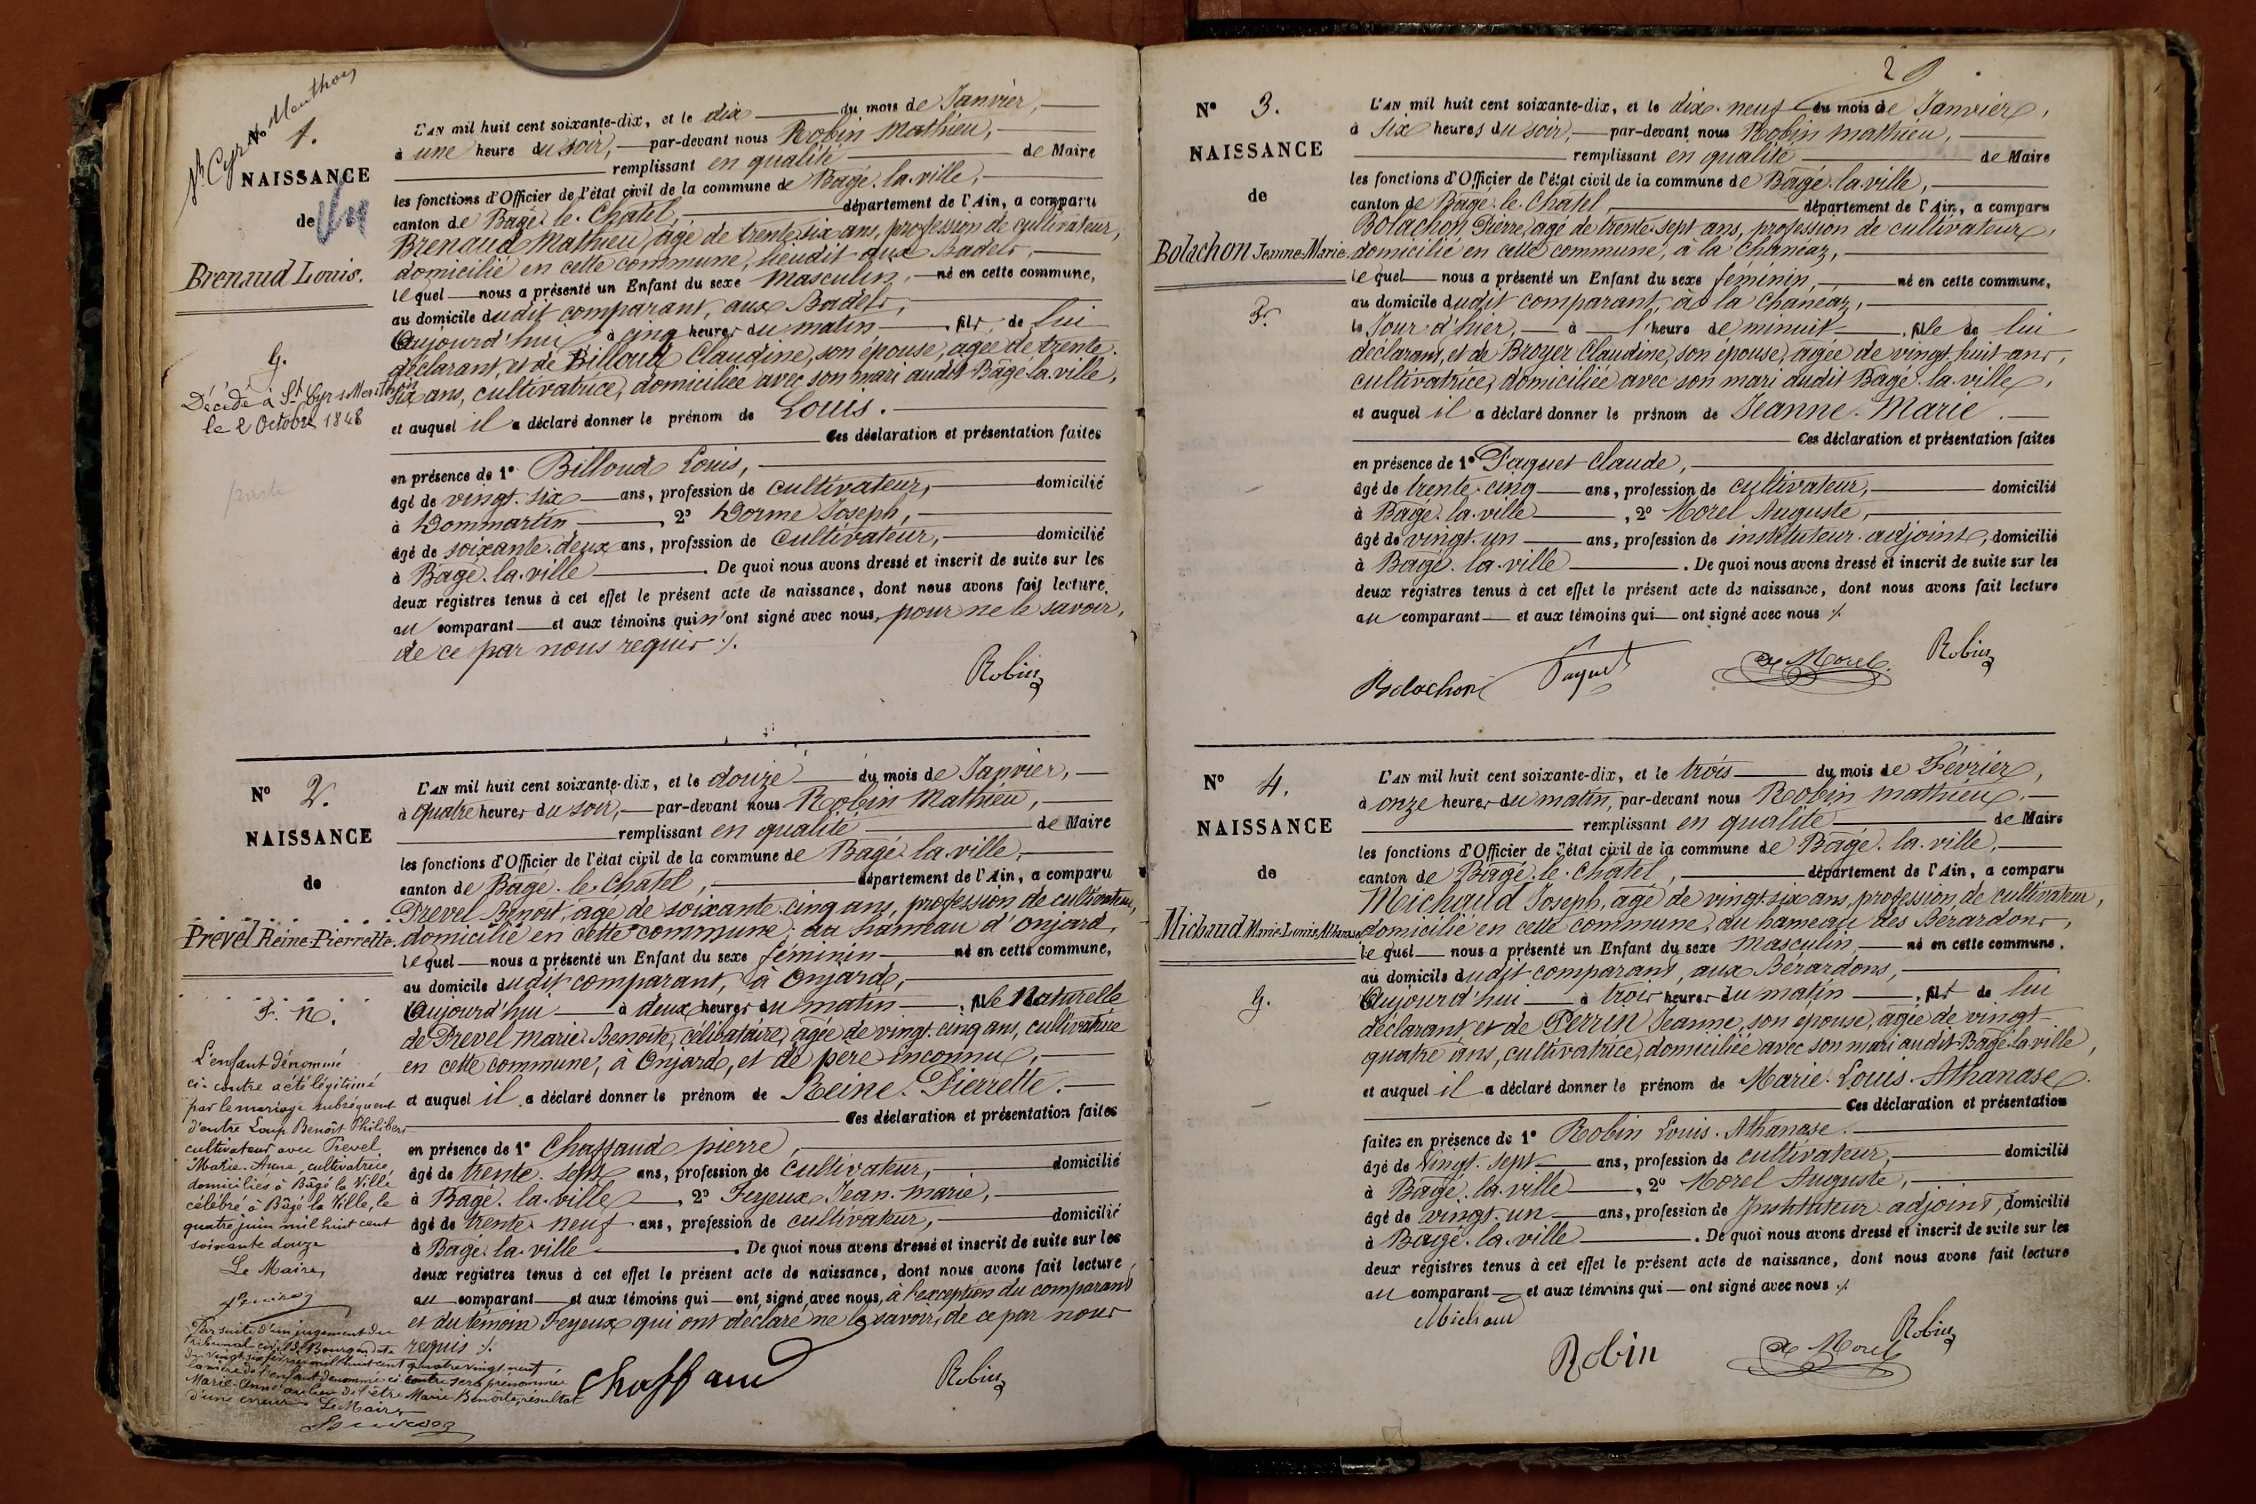 St Cyr s. Menthon
N° 1.
NAISSANCE
de
Brenaud Louis.
G.
Décédé à St Cyr s Menthon
le 2 Octobre 1848
L'AN mil huit cent soixante-dix, et le dix du mois de Janvier,
à une heure du soir, par-devant nous Robin Mathieu,
remplissant en qualité de Maire
les fonctions d'Officier de l'état civil de la commune de Bâgé-la-ville,
canton de Bagé-le-Chatel, département de l'Ain, a comparu
Brenaud Mathieu, âgé de trente-six ans, profession de cultivateur,
domicilié en cette commune, lieudit aux Badels,
lequel nous a présenté un Enfant du sexe masculin, né en cette commune,
au domicile dudit comparant, aux Badels,
Aujourd'hui à cinq heures du matin, fils de lui
déclarant, et de Billoud Claudine, son épouse, agée de trente-
six ans, cultivatrice, domiciliée avec son mari audit Bâgé-la-ville,
et auquel il a déclaré donner le prénom de Louis.
Ces déclaration et présentation faites
en présence de 1° Billoud Louis,
âgé de vingt-six ans, profession de cultivateur, domicilié
à Dommartin, 2° Dorme Joseph,
âgé de soixante-deux ans, profession de cultivateur, domicilié
à Bâgé-la-ville. De quoi nous avons dressé et inscrit de suite sur les
deux registres tenus à cet effet le présent acte de naissance, dont nous avons fait lecture
au comparant et aux témoins qui n'ont signé avec nous, pour ne le savoir,
de ce par nous requis ./.
Robin
N° 2.
NAISSANCE
de
Prevel Reine-Pierrette.
F. n.
L'enfant dénommé
ci-contre a été légitimé
par le mariage subséquent
d'entre Loup Benoît Philibert
cultivateur avec Prevel
Marie-Anne, cultivatrice,
domiciliés à Bâgé la Ville
célébré à Bâgé la Ville, le
quatre juin mil huit cent
soixante douze
Le Maire,
Par suite d'un jugement du
tribunal civil de Bourg en date
du vingt-six février mil huit cent quatre vingt neuf
la mère de l'enfant dénommé ci contre sera prénommée
Marie-Anne au lieu de l'être Marie Benoîte, résultat
d'une erreur. Le Maire
L'AN mil huit cent soixante-dix, et le douze du mois de Janvier,
à quatre heures du soir, par-devant nous Robin Mathieu,
remplissant en qualité de Maire
les fonctions d'Officier de l'état civil de la commune de Bagé-la-ville,
canton de Bagé-le-Chatel, département de l'Ain, a comparu
Prevel Benoît, âgé de soixante-cinq ans, profession de cultivateur,
domicilié en cette commune, au hameau d'Onjard,
lequel nous a présenté un Enfant du sexe féminin né en cette commune,
au domicile dudit comparant, à Onjard,
Aujourd'hui à deux heures du matin, fille Naturelle
de Prevel Marie-Benoîte, célibataire, âgée de vingt-cinq ans, cultivatrice
en cette commune, à Onjard, et de père inconnu,
et auquel il a déclaré donner le prénom de Reine-Pierrette.
Ces déclaration et présentation faites
en présence de 1° Chaffaud pierre,
âgé de trente-sept ans, profession de cultivateur, domicilié
à Bagé-la-ville, 2° Feyeux Jean-marie,
âgé de trente-neuf ans, profession de cultivateur, domicilié
à Bagé-la-ville. De quoi nous avons dressé et inscrit de suite sur les
deux registres tenus à cet effet le présent acte de naissance, dont nous avons fait lecture
au comparant et aux témoins qui ont signé avec nous, à l'exception du comparant
et du témoin Feyeux qui ont déclaré ne le savoir, de ce par nous
requis ./.
Chaffaud Robin
2
N° 3.
NAISSANCE
de
Bolachon Jeanne-Marie.
F.
L'AN mil huit cent soixante-dix, et le dix-neuf du mois de Janvier,
à six heures du soir, par-devant nous Robin mathieu,
remplissant en qualité de Maire
les fonctions d'Officier de l'état civil de la commune de Bâgé-la-ville,
canton de Bâgé-le-Chatel, département de l'Ain, a comparu
Bolachon Pierre, âgé de trente-sept ans, profession de cultivateur,
domicilié en cette commune, à la Chanéaz,
lequel nous a présenté un Enfant du sexe féminin, né en cette commune,
au domicile dudit comparant, à la Chanéaz,
le Jour d'hier, à l'heure de minuit, fille de lui
déclarant, et de Broyer Claudine, son épouse, âgée de vingt-huit ans,
cultivatrice, domiciliée avec son mari audit Bagé-la-ville,
et auquel il a déclaré donner le prénom de Jeanne-Marie.
Ces déclaration et présentation faites
en présence de 1° Paquet Claude,
âgé de trente-cinq ans, profession de cultivateur, domicilié
à Bagé-la-ville, 2° Morel Auguste,
âgé de vingt-un ans, profession de instituteur-adjoint, domicilié
à Bâgé-la-ville. De quoi nous avons dressé et inscrit de suite sur les
deux registres tenus à cet effet le présent acte de naissance, dont nous avons fait lecture
au comparant et aux témoins qui ont signé avec nous ./.
Bolachon Paquet A Morel Robin
N° 4.
NAISSANCE
de
Michaud Marie-Louis-Athanase
G.
L'AN mil huit cent soixante-dix, et le trois du mois de Février,
à onze heures du matin, par-devant nous Robin mathieu,
remplissant en qualité de Maire
les fonctions d'Officier de l'état civil de la commune de Bâgé-la-ville,
canton de Bâgé-le-Chatel, département de l'Ain, a comparu
Michaud Joseph, âgé de vingt-six ans, profession de cultivateur,
domicilié en cette commune, au hameau des Bérardons,
lequel nous a présenté un Enfant du sexe masculin, né en cette commune,
au domicile dudit comparant, aux Bérardons,
Aujourd'hui à trois heures du matin, fils de lui
déclarant, et de Perrin Jeanne, son épouse, âgée de vingt-
quatre ans, cultivatrice, domiciliée avec son mari audit Bâgé-la-ville,
et auquel il a déclaré donner le prénom de Marie-Louis-Athanase.
Ces déclaration et présentation
faites en présence de 1° Robin Louis-Athanase.
âgé de vingt-sept ans, profession de cultivateur, domicilié
à Bâgé-la-ville, 2° Morel Auguste,
âgé de vingt-un ans, profession de Instituteur-adjoint, domicilié
à Bâgé-la-ville. De quoi nous avons dressé et inscrit de suite sur les
deux registres tenus à cet effet le présent acte de naissance, dont nous avons fait lecture
au comparant et aux témoins qui ont signé avec nous ./.
Michaud
Robin A Morel Robin